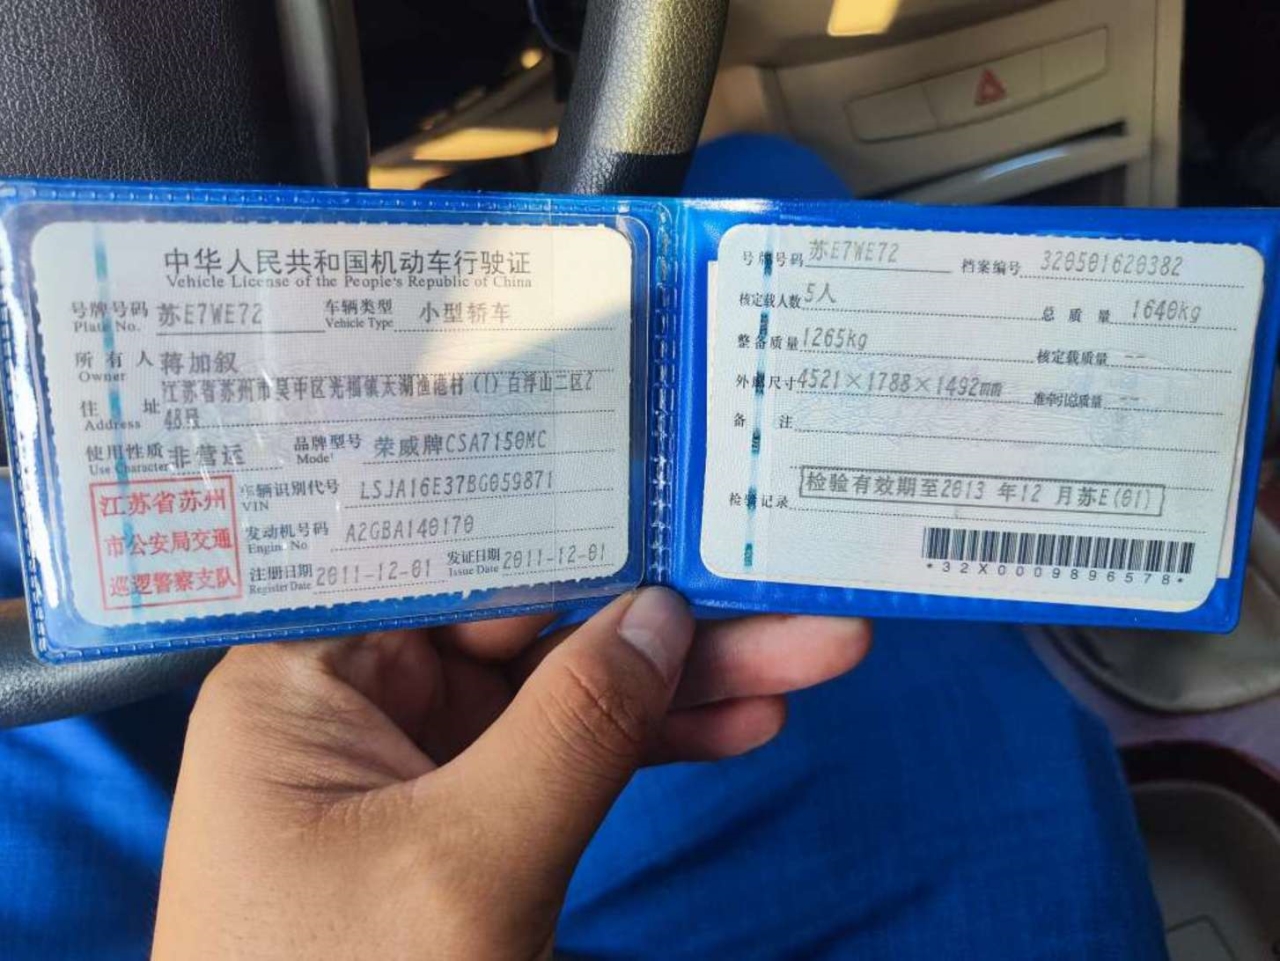 中华人民共和国机动车行驶证
Vehicle License of the People's Republic of China
号牌号码 苏E7WE72 车辆类型 小型轿车
Plate No. Vehicle Type
所有人 蒋加叙
Owner
江苏省苏州市吴中区光福镇太湖渔港村(1)白浮山二区2
住址 48号
Address
使用性质 非营运 品牌型号 荣威牌CSA7150MC
Use Character Model
江苏省苏州
市公安局交通
巡逻警察支队
车辆识别代号 LSJA16E37BG059871
VIN
发动机号码 A2GBA140170
Engine No
注册日期 2011-12-01 发证日期 2011-12-01
Register Date Issue Date
号牌号码 苏E7WE72 档案编号 320501620382
核定载人数 5人 总质量 1640kg
整备质量 1265kg 核定载质量 --
外廓尺寸 4521×1788×1492mm 准牵引总质量 --
备注
检验记录 检验有效期至2013年12月苏E(01)
*32X0009896578*